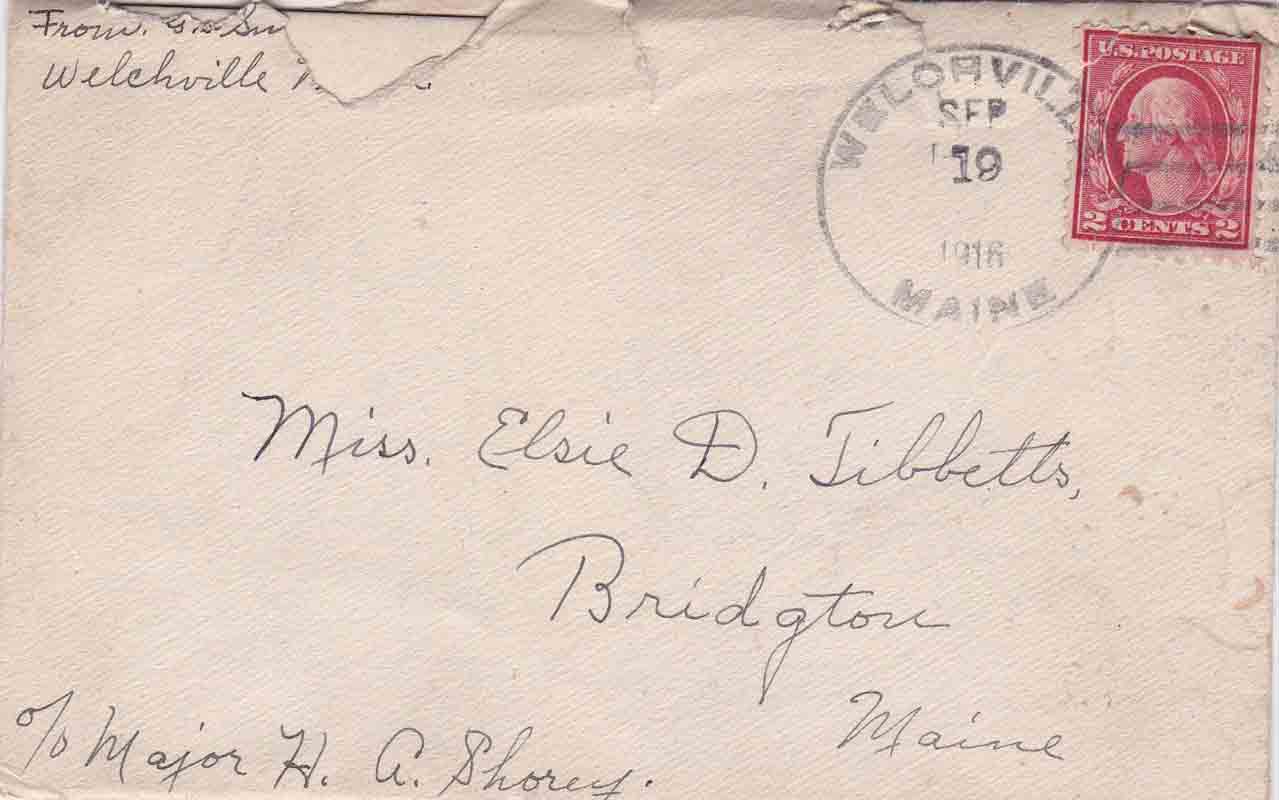 From. G. S.
Welchville
WELCHVILL
SEP
19
1916
MAINE
U.S. POSTAGE
2 CENTS 2
Miss. Elsie D. Tibbetts,
Bridgton
Maine
c/o Major H. A. Shorey.